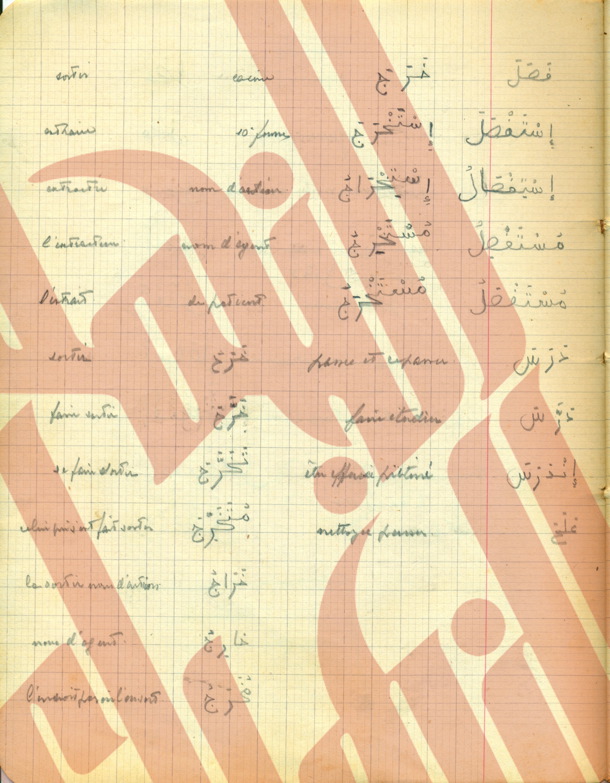 sortir racine خَرَجَ فَصَلَ
extraire 10e forme إِسْتَخْرَجَ إِسْتَفْصَلَ
extraction nom d'action إِسْتِخْرَاجُ إِسْتِفْصَالُ
l'extracteur nom d'agent مُسْتَخْرِجُ مُسْتَفْصِلُ
l'extrait de patient مُسْتَخْرَجُ مُسْتَفْصَلُ
sortir خَرَجَ passer et دَرَسَ
faire sortir خَرَّجَ faire étudier دَرَّسَ
se faire sortir تَخَرَّجَ être effacé piétiné إِنْدَرَسَ
celui qui est fait sortir nettoyer
la sortie nom d'action خَرَاجُ
nom d'agent خَارِجُ
l'endroit par où l'on sort